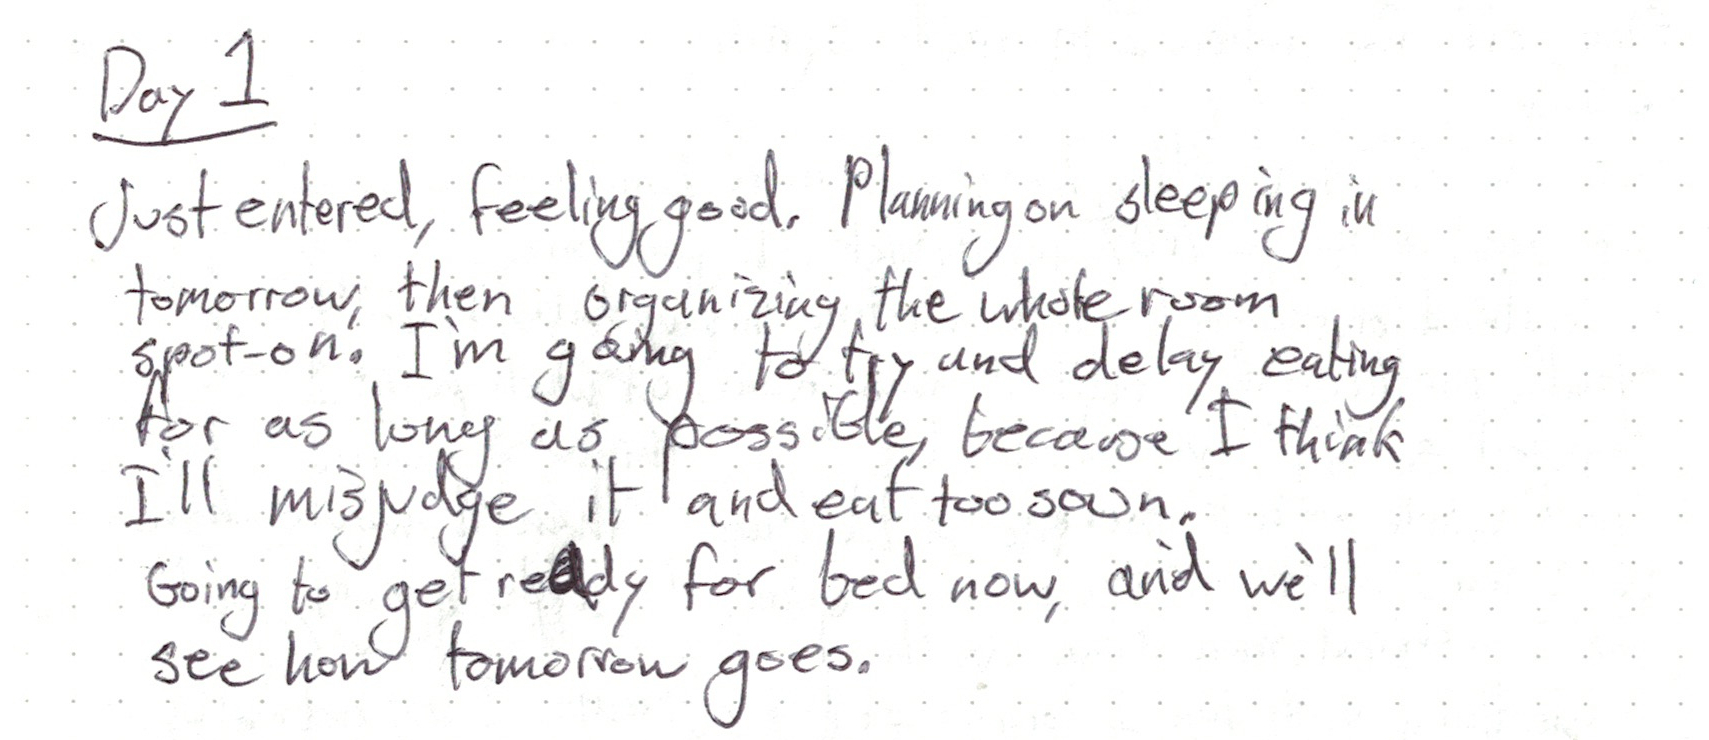 Day 1
Just entered, feeling good. Planning on sleeping in
tomorrow, then organizing the whole room
spot-on. I'm going to try and delay eating
for as long as possible, because I think
I'll misjudge it and eat too soon.
Going to get ready for bed now, and we'll
see how tomorrow goes.